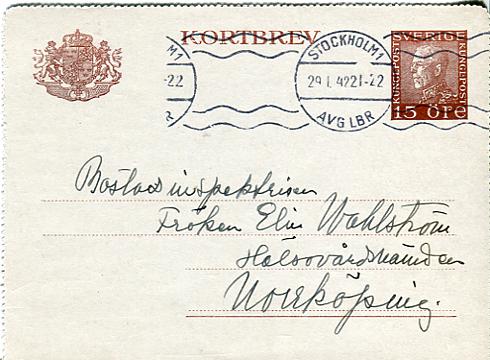 KORTBREV
SVERIGE
KUNGL.POST
KUNGL.POST
15 ÖRE
M1
-22
R
STOCKHOLM 1
29.1.42 21-22
AVG LBR
Bostadsinspektrisen
Fröken Elin Wahlström
Hälsovårdsnämnden
Norrköping.